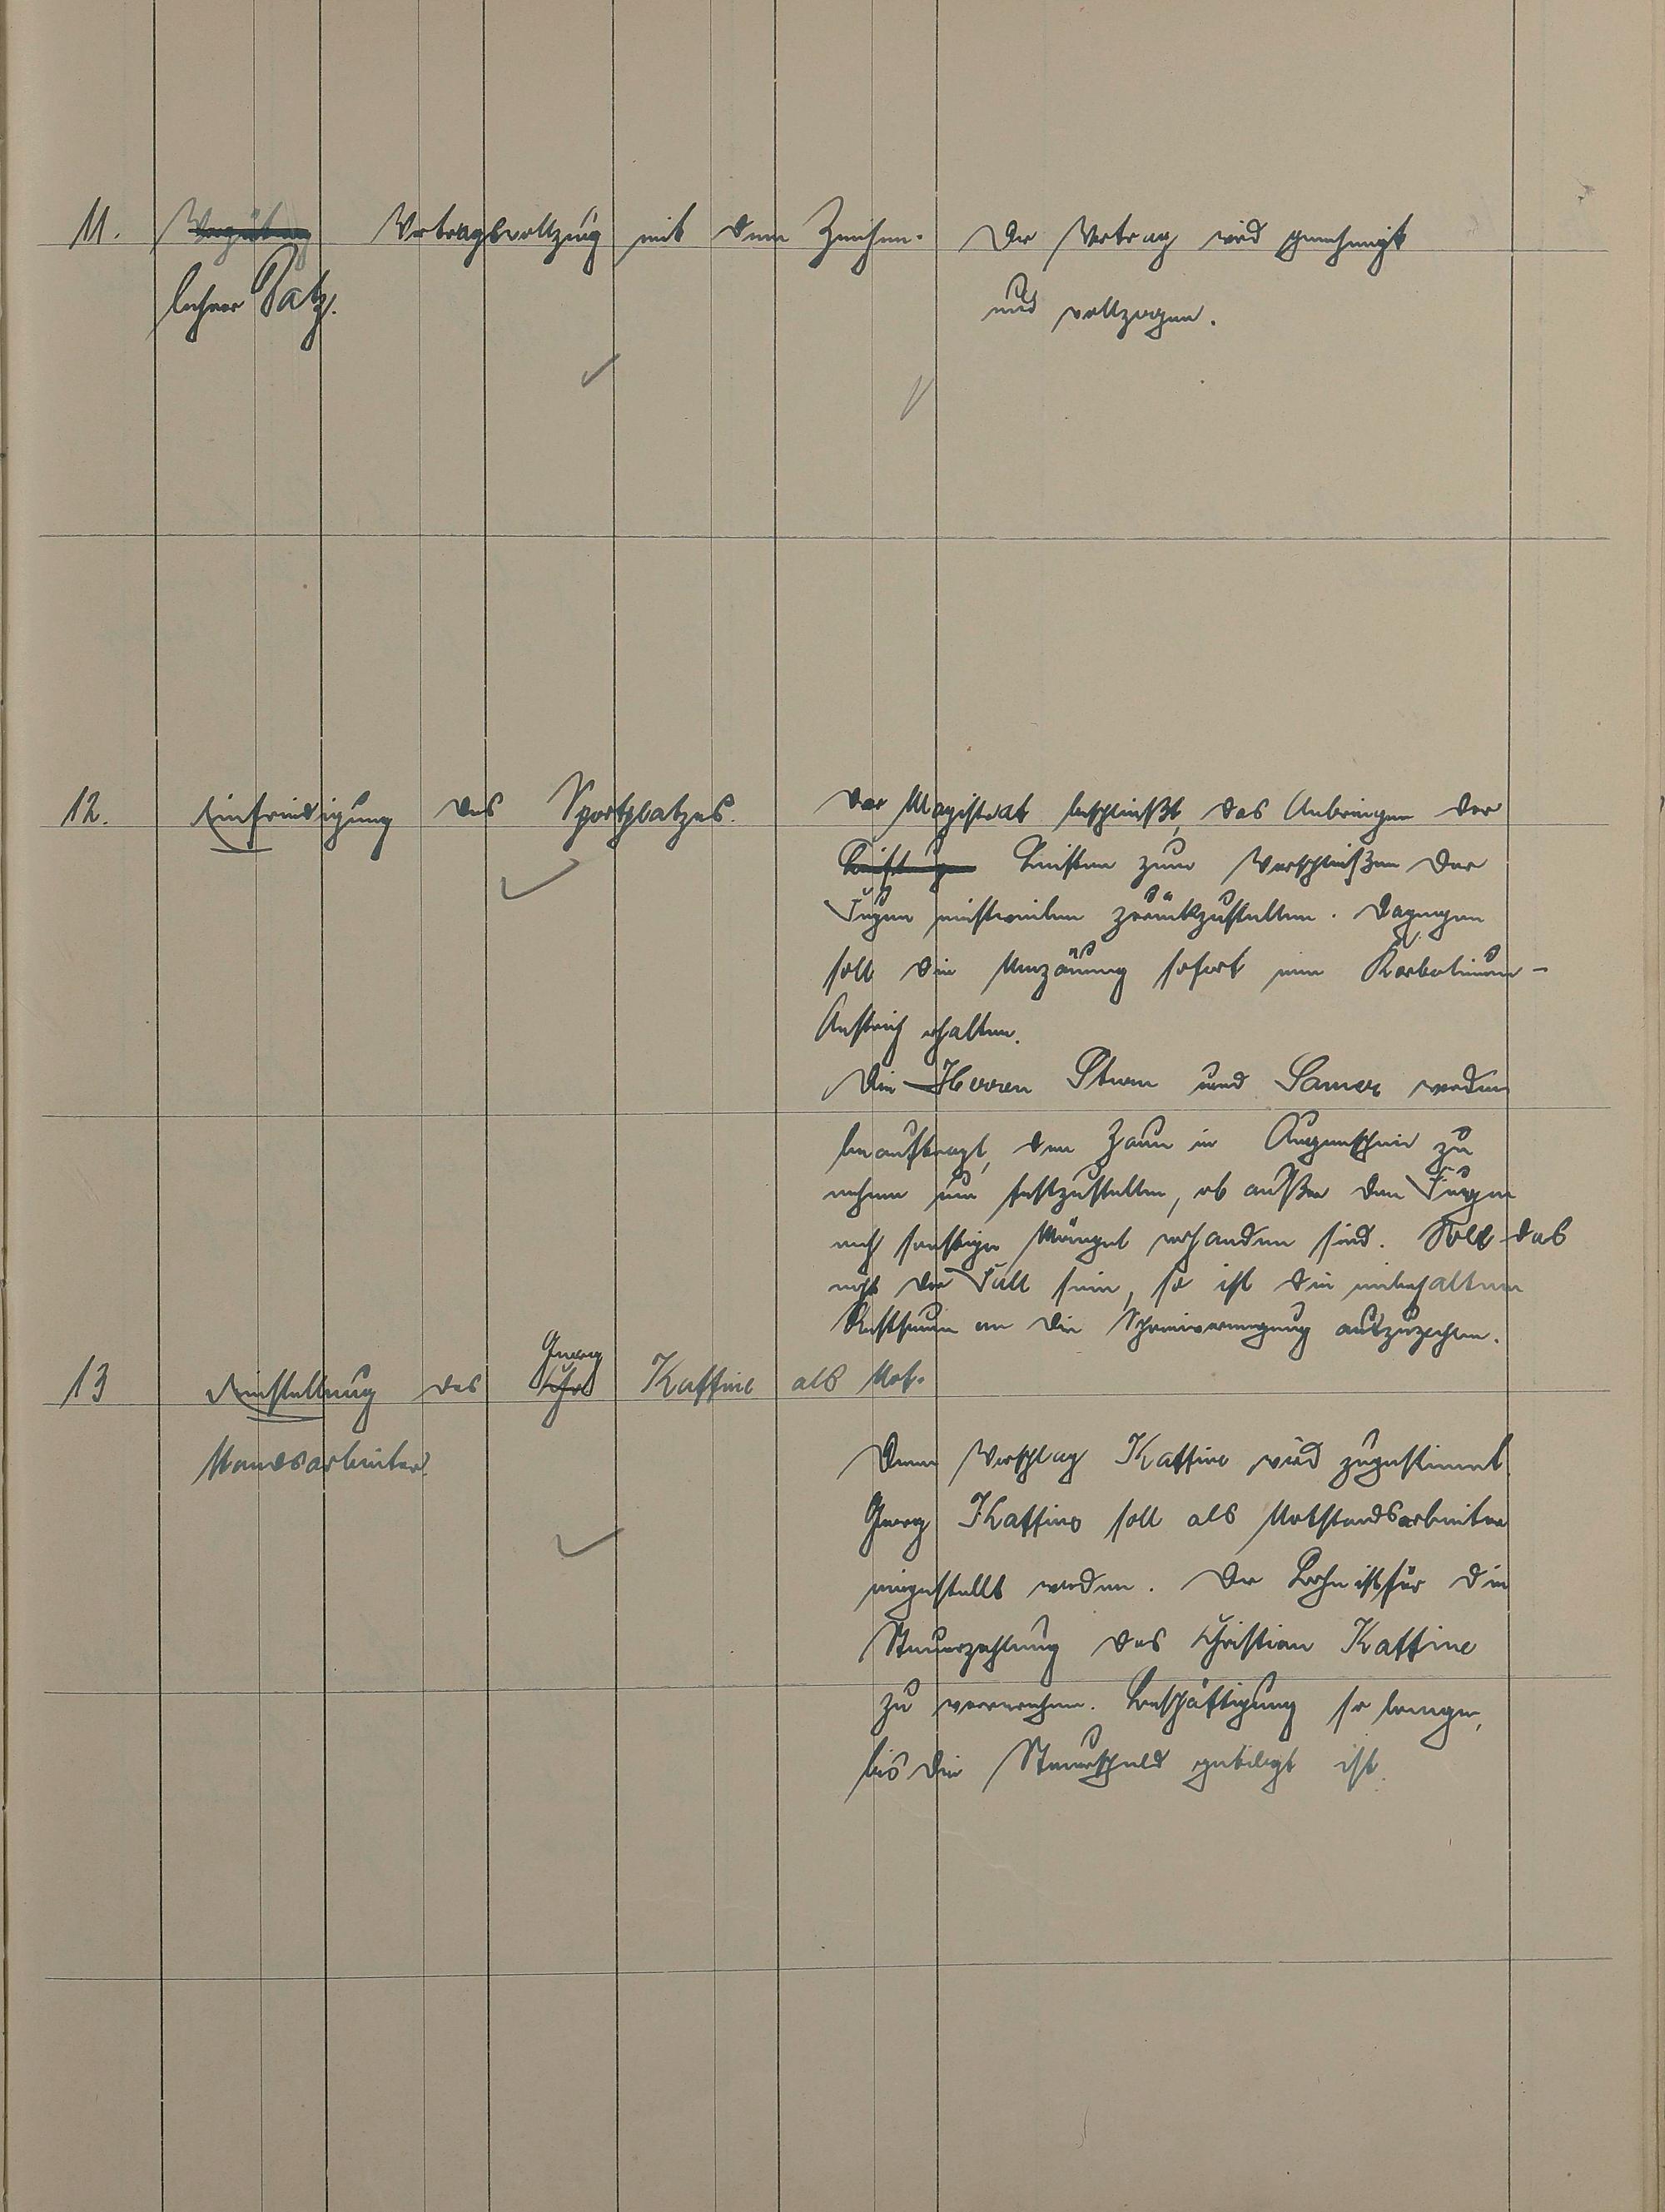 11. Vergütung Vertragsvollzug mit dem Zeichen-
lehrer Patz.
Der Vertrag wird genehmigt
und vollzogen.
12. Einfriedigung des Sportplatzes.
Der Magistrat beschließt, das Anbringen der
Leisten zum Verschließen der
Fugen einstweilen zurückzustellen. Dagegen
soll die Umzäunung sofort einen Karbolineum-
Anstrich erhalten.
Die Herren Sturm und Samer werden
beauftragt, den Zaun in Augenschein zu
nehmen um festzustellen, ob außer den Fugen
noch sonstige Mängel vorhanden sind. Soll das
nicht der Fall sein, so ist die einbehaltene
Restsumme an die Schreinervereinigung auszuzahlen.
13 Einstellung des Georg Kaffine als Not-
standsarbeiter.
Dem Vorschlag Kaffine wird zugestimmt.
Georg Kaffine soll als Notstandsarbeiter
eingestellt werden. Der Lohn ist für die
Steuerzahlung des Christian Kaffine
zu verrechnen. Beschäftigung so lange,
bis die Steuerschuld getilgt ist.